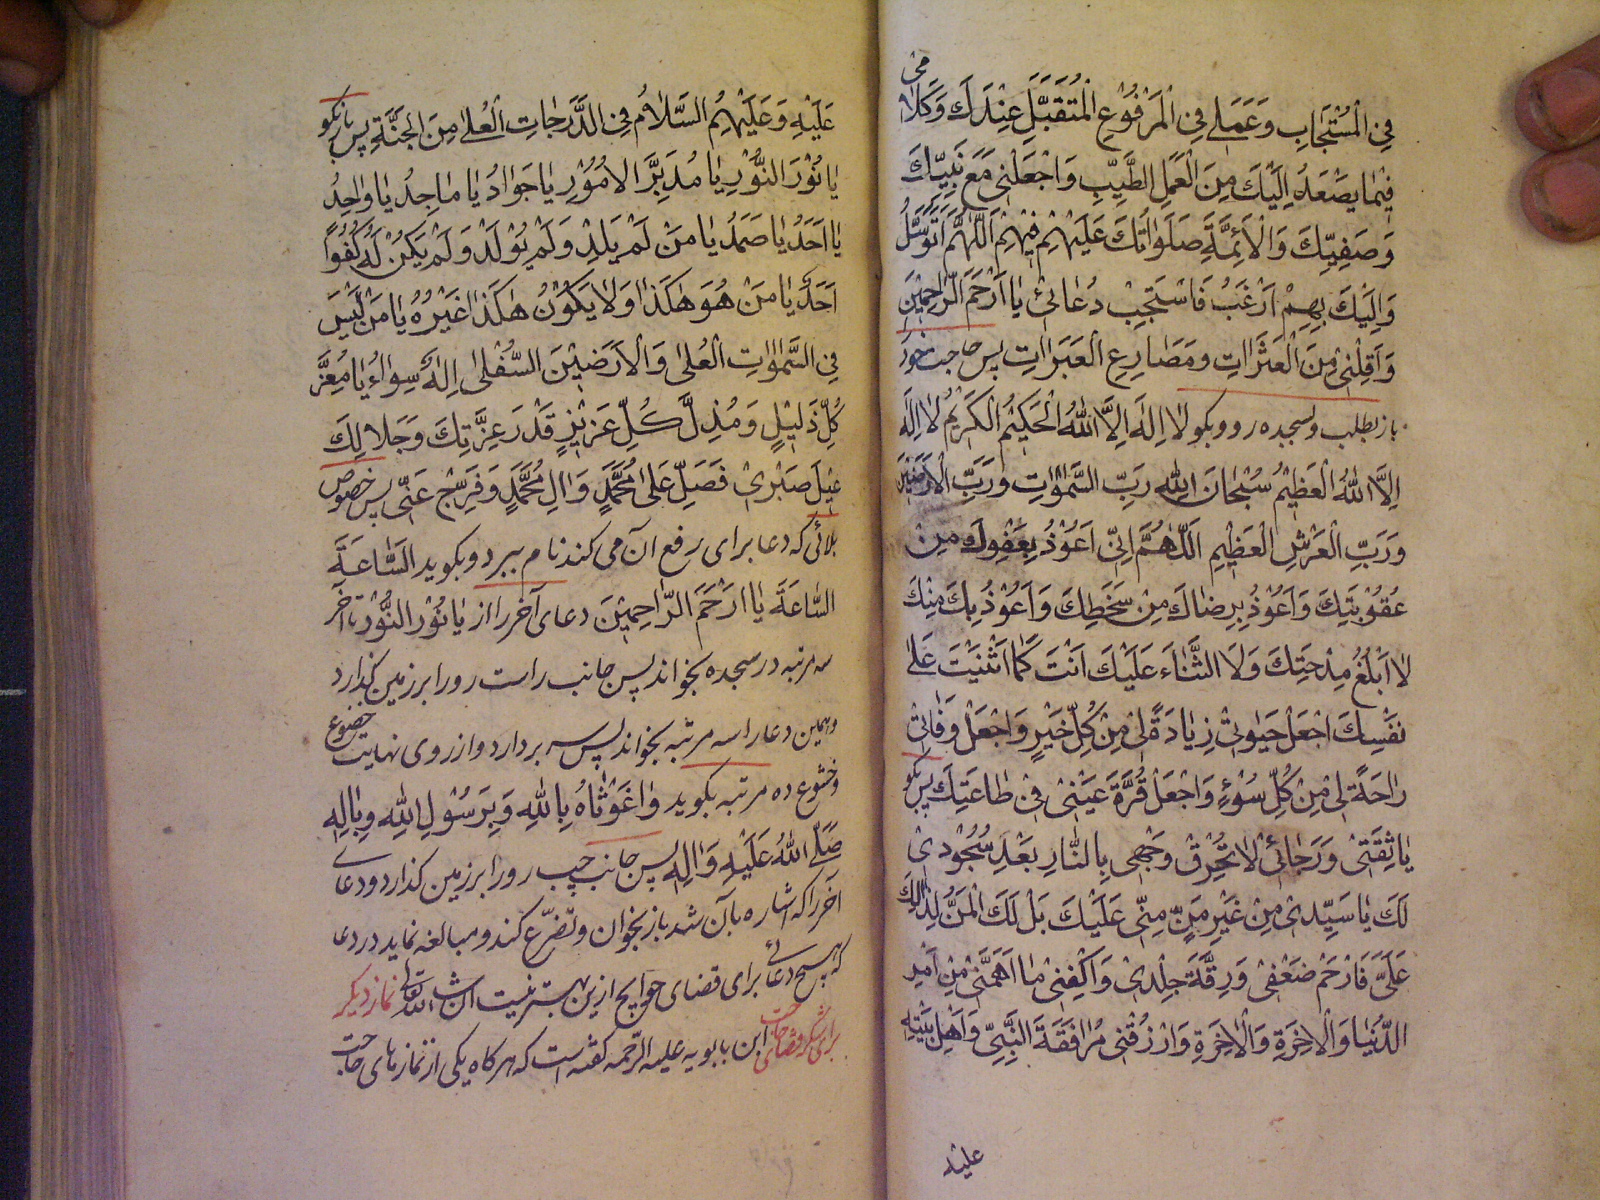 فِي الْمُسْتَجَابِ وَعَمَلِي فِي الْمَرْفُوعِ الْمُتَقَبَّلِ عِنْدَكَ وَكَلَامِي
فِيمَا يَصْعَدُ اِلَيْكَ مِنَ الْعَمَلِ الطَّيِّبِ وَاجْعَلْنِي مَعَ نَبِيِّكَ
وَصَفِيِّكَ وَالْاَئِمَّةِ صَلَوَاتُكَ عَلَيْهِمْ فَبِهِمْ اَللّٰهُمَّ اَتَوَسَّلُ
وَاِلَيْكَ بِهِمْ اَرْغَبُ فَاسْتَجِبْ دُعَائِي يَا اَرْحَمَ الرَّاحِمِينَ
وَاَقِلْنِي مِنَ الْعَثَرَاتِ وَمَصَارِعِ الْعَبَرَاتِ پس حاجت خود
باز بطلب و بسجده رو و بكو لَا اِلٰهَ اِلَّا اللهُ الْحَكِيْمُ الْكَرِيْمُ لَا اِلٰهَ
اِلَّا اللهُ الْعَظِيْمُ سُبْحَانَ اللهِ رَبِّ السَّمٰوَاتِ وَرَبِّ الْاَرَضِيْنَ
وَرَبِّ الْعَرْشِ الْعَظِيْمِ اَللّٰهُمَّ اِنِّي اَعُوْذُ بِعَفْوِكَ مِنْ
عُقُوْبَتِكَ وَاَعُوْذُ بِرِضَاكَ مِنْ سَخَطِكَ وَاَعُوْذُ بِكَ مِنْكَ
لَا اَبْلُغُ مِدْحَتَكَ وَلَا الثَّنَاءَ عَلَيْكَ اَنْتَ كَمَا اَثْنَيْتَ عَلٰى
نَفْسِكَ اجْعَلْ حَيٰوتِي زِيَادَةً لِي مِنْ كُلِّ خَيْرٍ وَاجْعَلْ وَفَاتِي
رَاحَةً لِي مِنْ كُلِّ سُوْءٍ وَاجْعَلْ قُرَّةَ عَيْنِي فِي طَاعَتِكَ پس بكو
يَا ثِقَتِي وَرَجَائِي لَا تُحْرِقْ وَجْهِي بِالنَّارِ بَعْدَ سُجُوْدِي
لَكَ يَا سَيِّدِي مِنْ غَيْرِ مَنٍّ مِنِّي عَلَيْكَ بَلْ لَكَ الْمَنُّ لِذٰلِكَ
عَلَيَّ فَارْحَمْ ضَعْفِي وَرِقَّةَ جِلْدِي وَاكْفِنِي مَا اَهَمَّنِي مِنْ اَمْرِ
الدُّنْيَا وَالْاٰخِرَةِ وَالْاٰخِرَةِ وَارْزُقْنِي مُرَافَقَةَ النَّبِيِّ وَاَهْلِ بَيْتِهِ
عليه
عَلَيْهِ وَعَلَيْهِمُ السَّلَامُ فِي الدَّرَجَاتِ الْعُلٰى مِنَ الْجَنَّةِ پس باز بكو
يَا نُوْرَ النُّوْرِ يَا مُدَبِّرَ الْاُمُوْرِ يَا جَوَادُ يَا مَاجِدُ يَا وَاحِدُ
يَا اَحَدُ يَا صَمَدُ يَا مَنْ لَمْ يَلِدْ وَلَمْ يُوْلَدْ وَلَمْ يَكُنْ لَهُ كُفُوًا
اَحَدٌ يَا مَنْ هُوَ هٰكَذَا وَلَا يَكُوْنُ هٰكَذَا غَيْرُهُ يَا مَنْ لَيْسَ
فِي السَّمٰوَاتِ الْعُلٰى وَالْاَرَضِيْنَ السُّفْلٰى اِلٰهٌ سِوَاهُ يَا مُعِزَّ
كُلِّ ذَلِيْلٍ وَمُذِلَّ كُلِّ عَزِيْزٍ قَدْ وَعِزَّتِكَ وَجَلَالِكَ
عِيْلَ صَبْرِي فَصَلِّ عَلٰى مُحَمَّدٍ وَاٰلِ مُحَمَّدٍ وَفَرِّجْ عَنِّي پس خصوص
بلائى كه دعا براى رفع آن مى كند نام ببرد و بكويد السَّاعَةَ
السَّاعَةَ يَا اَرْحَمَ الرَّاحِمِيْنَ دعاى آخر را از يَا نُوْرَ النُّوْرِ تا آخر
سه مرتبه در سجده بخواند پس جانب راست رو را بر زمين كذارد
و همين دعا را سه مرتبه بخواند پس سر بردارد و از روى نهايت خضوع
و خشوع ده مرتبه بكويد وَاغَوْثَاهُ بِاللهِ وَبِرَسُوْلِ اللهِ وَبِاٰلِهِ
صَلَّى اللهُ عَلَيْهِ وَاٰلِهِ پس جانب چپ رو را بر زمين كذارد و دعاى
آخر را كه اشاره بآن شد باز بخوان و تضرّع كند و مبالغه نمايد در دعا
كه هيچ دعائى براى قضاى حوايج ازين بهتر نيست ان شاء الله تعالى نماز ديكر
براى شكر و قضاى حاجت ابن بابويه عليه الرّحمه كفته است كه هركاه يكى از نمازهاى حاجت